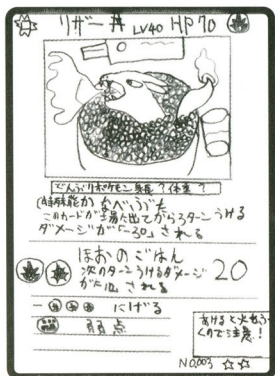 リザー丼 LV40 HP70
どんぶりポケモン 身長? 体重?
(特殊能力) なべぶた
このカードが場に出てから3ターンうける
ダメージが「-30」される
ほのおのごはん 20
次のターンうけるダメージ
が「-10」される
にげる
弱点
あけると火をふ
くので注意!
NO,003 ☆☆